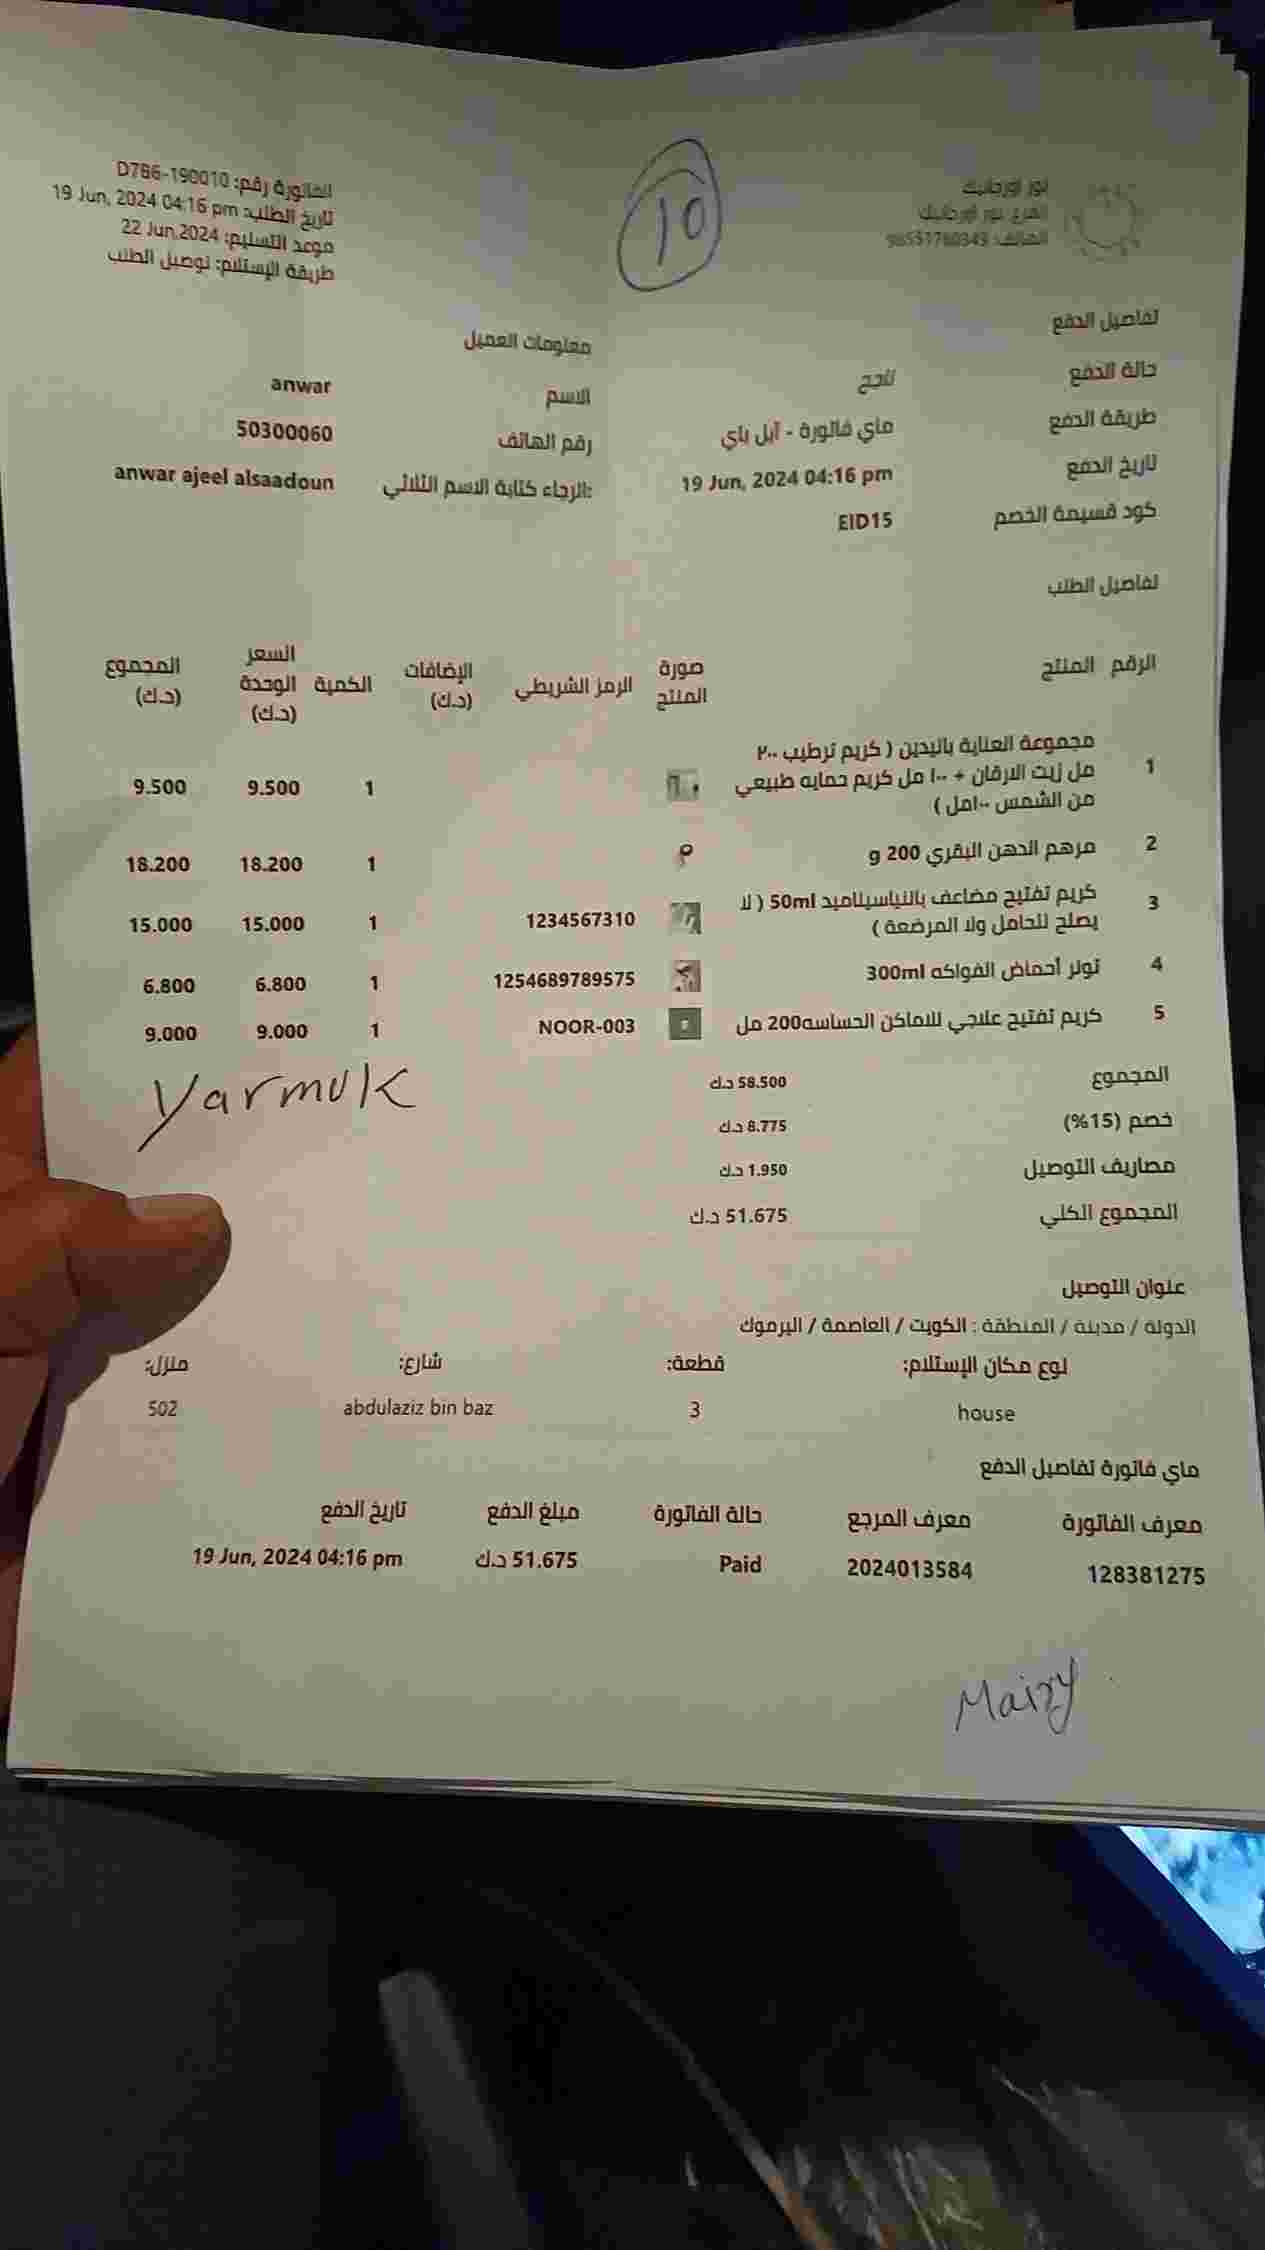 نور اورجانيك
الفرع: نور اورجانيك
الهاتف: 96551760343
10
الفاتورة رقم: D786-190010
تاريخ الطلب: 19 Jun, 2024 04:16 pm
موعد التسليم: 22 Jun,2024
طريقة الإستلام: توصيل الطلب
تفاصيل الدفع
حالة الدفع ناجح
طريقة الدفع ماي فاتورة - آبل باي
تاريخ الدفع 19 Jun, 2024 04:16 pm
كود قسيمة الخصم EID15
معلومات العميل
الاسم anwar
رقم الهاتف 50300060
الرجاء كتابة الاسم الثلاثي: anwar ajeel alsaadoun
تفاصيل الطلب
الرقم المنتج صورة المنتج الرمز الشريطي الإضافات (د.ك) الكمية السعر الوحدة (د.ك) المجموع (د.ك)
1 مجموعة العناية باليدين ( كريم ترطيب ٢٠٠
مل زيت الارقان + ١٠٠ مل كريم حمايه طبيعي
من الشمس ١٠٠مل ) 1 9.500 9.500
2 مرهم الدهن البقري 200 g 1 18.200 18.200
3 كريم تفتيح مضاعف بالنياسيناميد 50ml ( لا
يصلح للحامل ولا المرضعة ) 1234567310 1 15.000 15.000
4 تونر أحماض الفواكه 300ml 1254689789575 1 6.800 6.800
5 كريم تفتيح علاجي للاماكن الحساسه200 مل NOOR-003 1 9.000 9.000
Yarmuk
المجموع 58.500 د.ك
خصم (15%) 8.775 د.ك
مصاريف التوصيل 1.950 د.ك
المجموع الكلي 51.675 د.ك
عنوان التوصيل
الدولة / مدينة / المنطقة : الكويت / العاصمة / اليرموك
نوع مكان الإستلام: قطعة: شارع: منزل:
house 3 abdulaziz bin baz 502
ماي فاتورة تفاصيل الدفع
معرف الفاتورة معرف المرجع حالة الفاتورة مبلغ الدفع تاريخ الدفع
128381275 2024013584 Paid 51.675 د.ك 19 Jun, 2024 04:16 pm